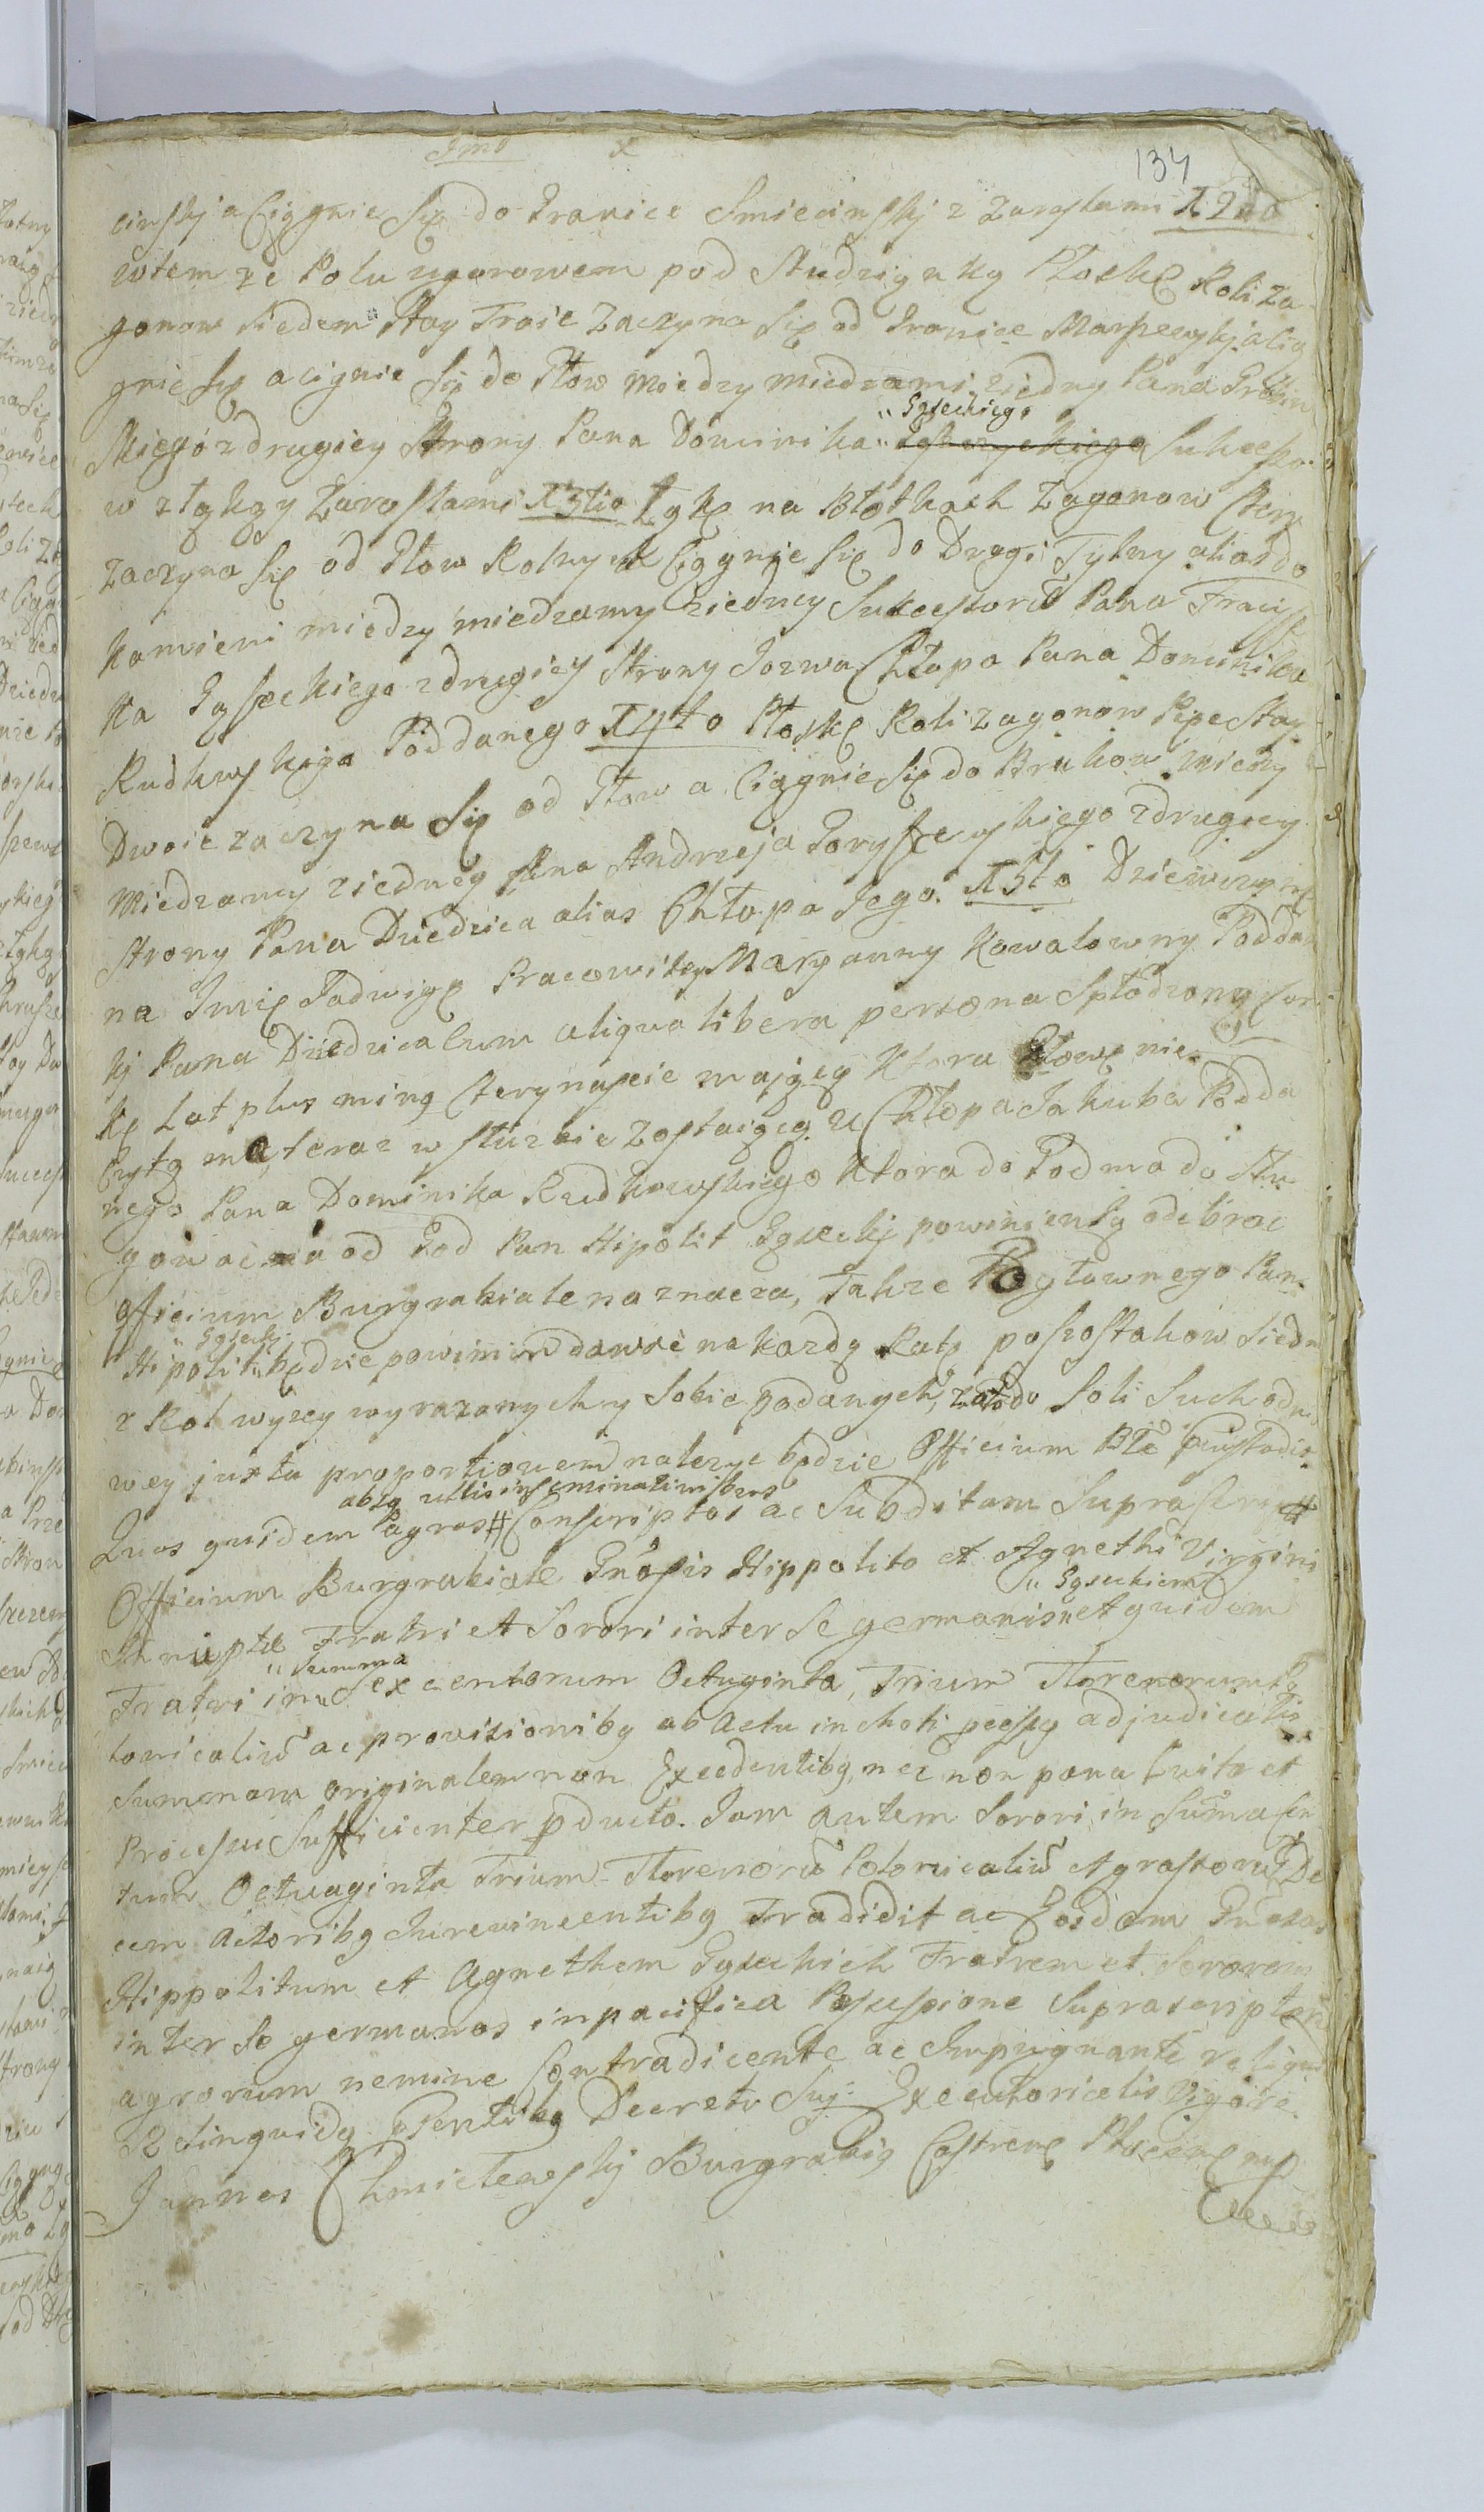 Imo x
134
cinskj a Ciągnie Się do Granice Smiecinskj z Zarostami X 2do
wtem ze Polu ugorowem pod Studzianką Płoskę Roli Za-
gonow Siedem Stay Troie Zaczyna Się od Granice
gnie Się a cignie Się do Płow miedzy miedzami ziedny Pana
Skiego zdrugiey Strony Pana Dominika "Gąseckiego Sukcesso-
w z łąką y Zarostami X 3tio Łąkę na Błotkach Zagonow Czery
Zaczyna Się od Płow Rolnych Ciągnie Się do Drogi Tylny alias do
Kamieni miedzy miedzamy ziedney Sukcessorū Pana Franciss
ka Gąseckiego zdrugiey Strony Jozwa Chłopa Pana Dominika
Rudkowskiego Poddanego X 4to Płoskę Roli zagonow Pięc Stay
Dwoie zaczyna Się od Płow a Ciągnie Się do Brukow miedzy
Miedzamy ziedney Pana Andrzeja Goryszewskiego zdrugiey
Strony Pana Dziedzica alias Chłopa Jego. X 5to Dziewczynę
na Imię Jadwigę Pracowitey Maryanny Kowalowny Poddan
kj Pana Dziedzica Cum aliqua libera persona Spłodzony Cor-
kę Lat plus ming Czerynascie mająცą Ktora Głowę nie-
Czystą ma teraz w służbie Zostaiącą U Chłopa Jakuba Podda
nego Pana Dominika Rudkowskiego Ktora do God ma do Słu
gowac a od God Pan Hipolit Gąseckj powinien Ją odebrac
officium Burgrabiale naznacza, Takze Pogłownego Pan
Hipolit "Gąseckj" będzie powinien dawac na kazdą Ratę poszostakow Siedm
z Rol wyzey wyrazonych y Sobie podanych, zas do Soli Suchodni
wey juxta proportionem nalezyc będzie Officium Btē
Quos quidem Pagros # absq ullis inseminationibus Conscriptos ac Subditam Suprascrip #
Officium Burgrabiale Gnosis Hippolito et Agnethi Virgini
Innuptæ Fratri et Sorori inter Se germanis "Gąseckiem et quidem
Fratri in "Summa Sexcentorum Octuginta, Trium Florenorum Po
lonicaliū ac provisionibg ab Actu inchoti adjudicatis
Summam originalem non Excedentibg, nec non pæna luita et
Processui Sufficienter pducto. Jam autem Sorori in Sūma Cen
tum Octuaginta Trium Florenorū Polonicaliū et grossorū De
cem Actoribg Jurevincentibg Tradidit ac Eosdem Gnosos
Hippolitum et Agnethem Gąseckich Fratrem et Sororem
inter Se germanos inpacifica Possessione Suprascriptorū
agrorum nemine Contradicente ac Impugnante reliquit
Psentibg Decreti Suj Executorialis Vigore.
Joannes Chmielewskj Burgrabig Castren